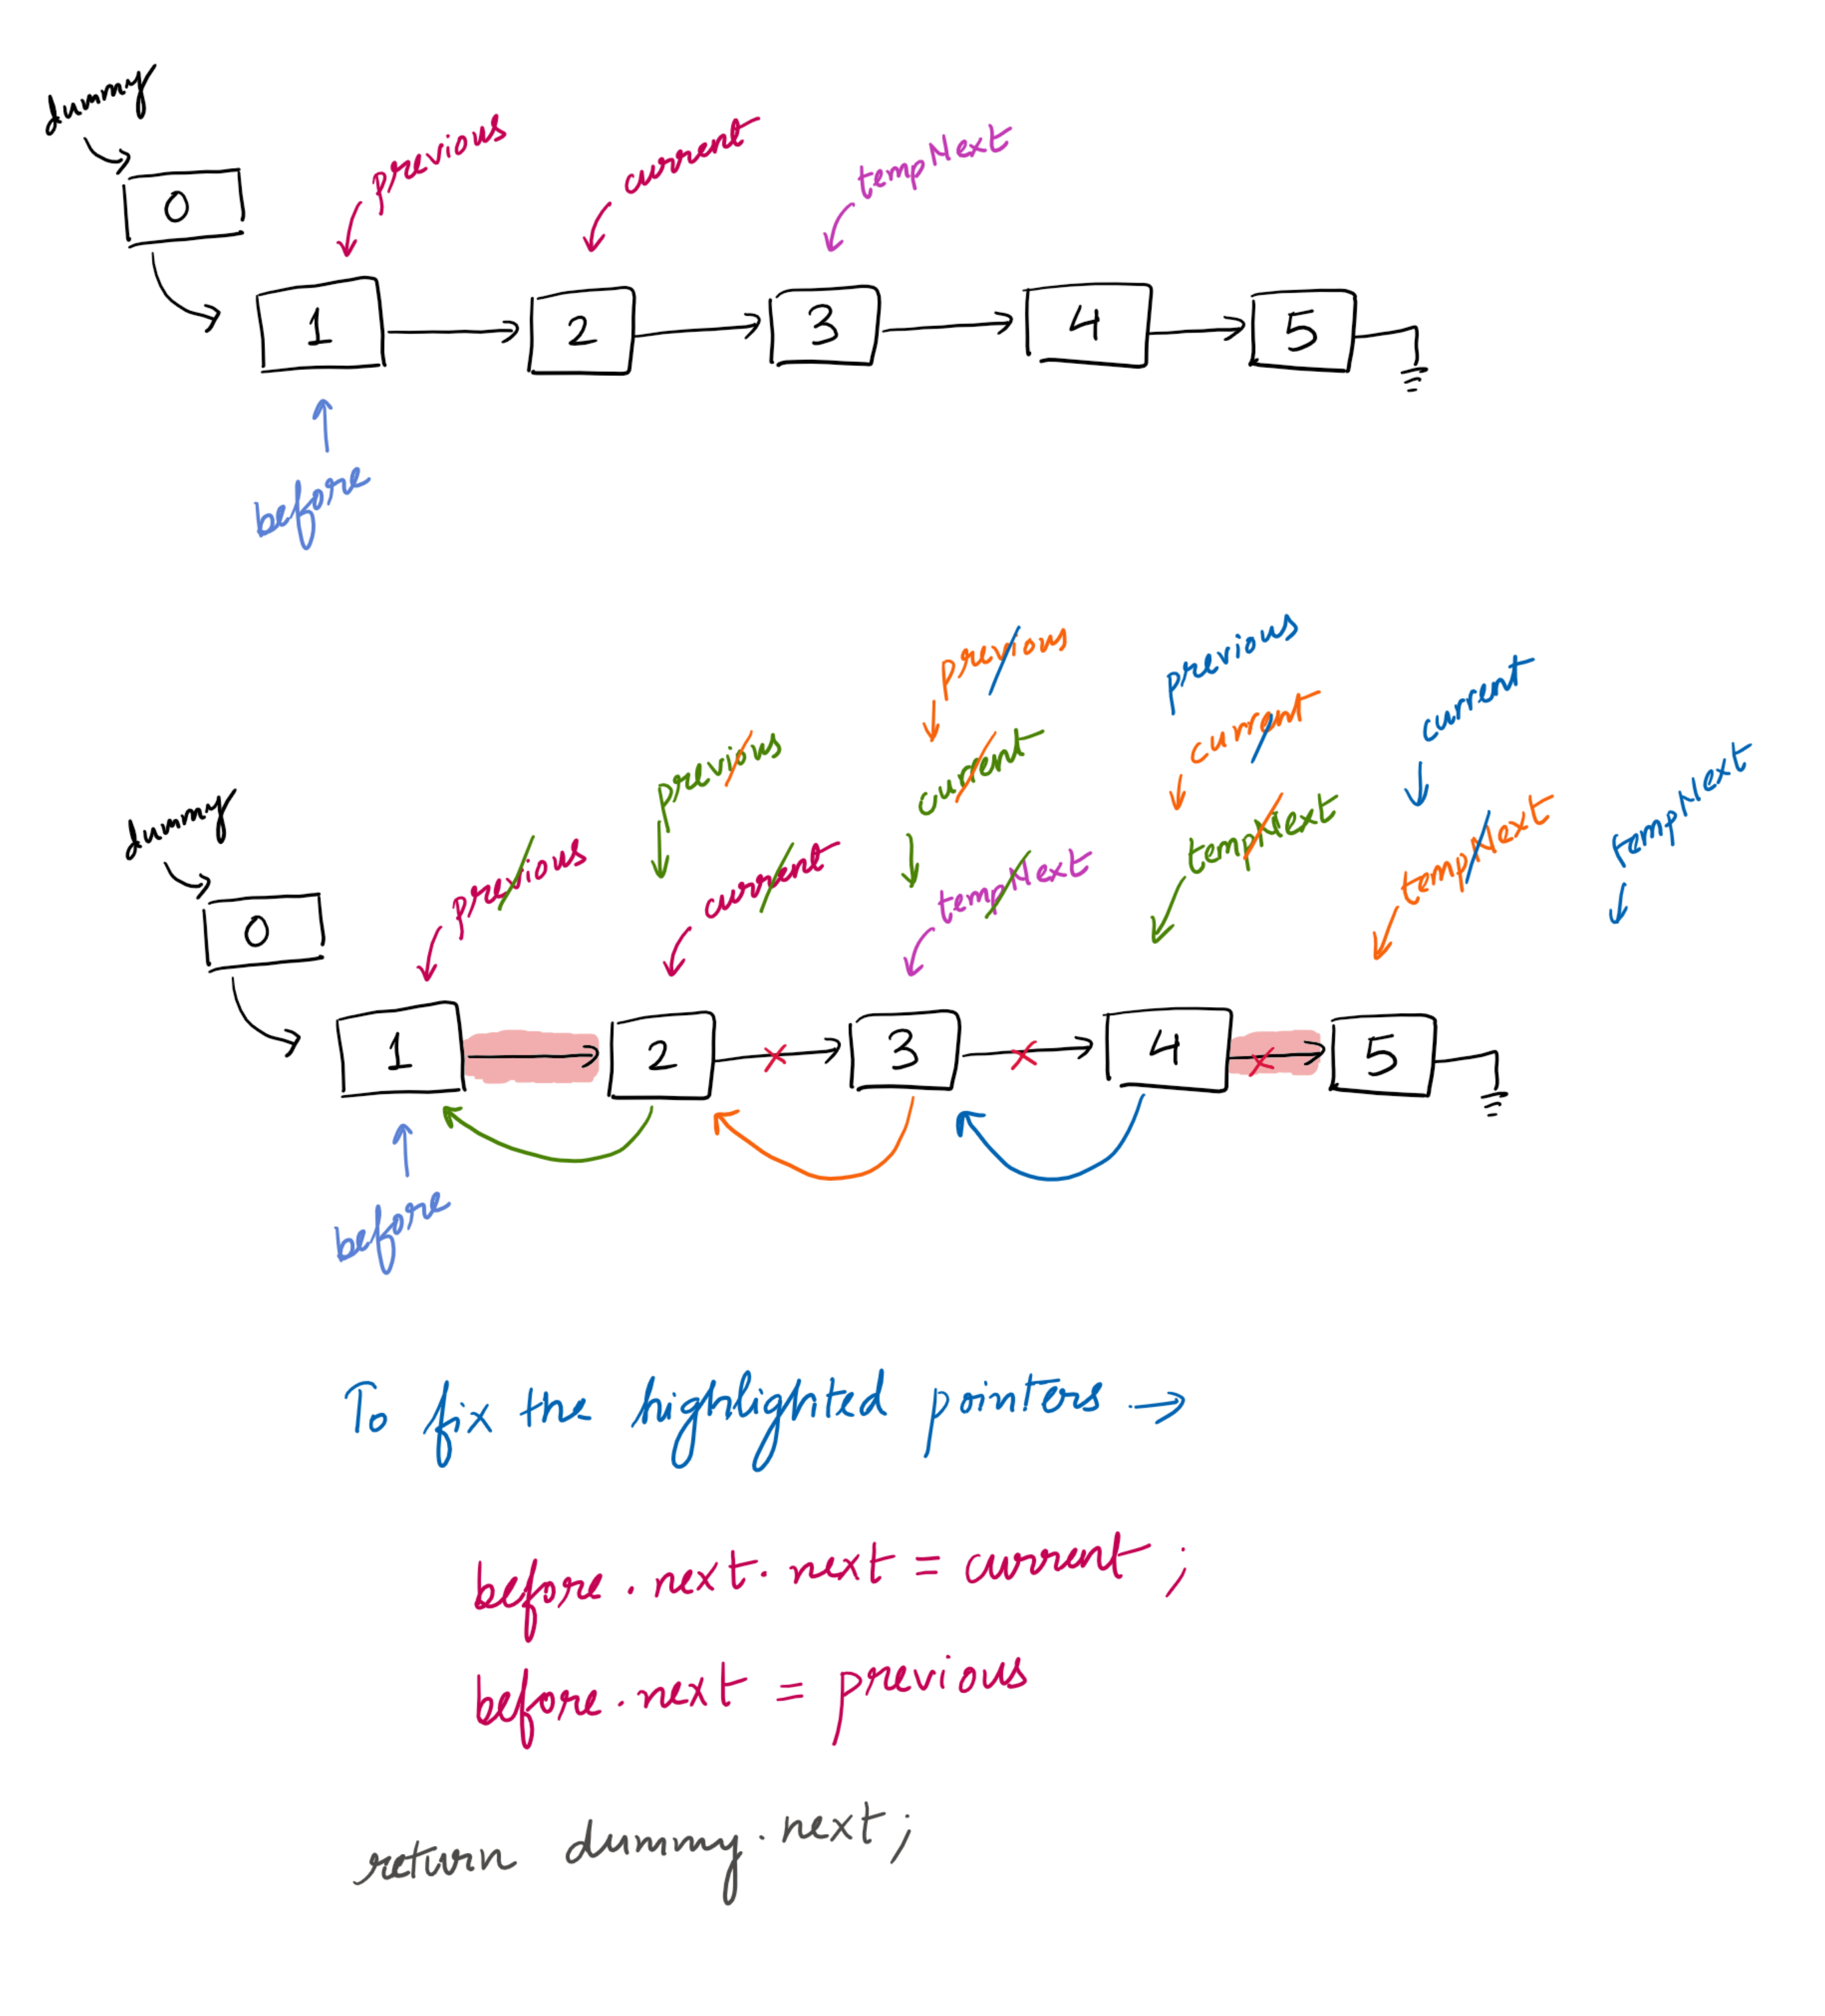 dummy
previous
current
tempNext
0
1 2 3 4 5
before
previous previous
current
previous current tempNext
current tempNext
dummy
previous current tempNext tempNext
0
1 2 3 4 5
before
To fix the highlighted pointers →
before.next.next = current ;
before.next = previous
return dummy.next;